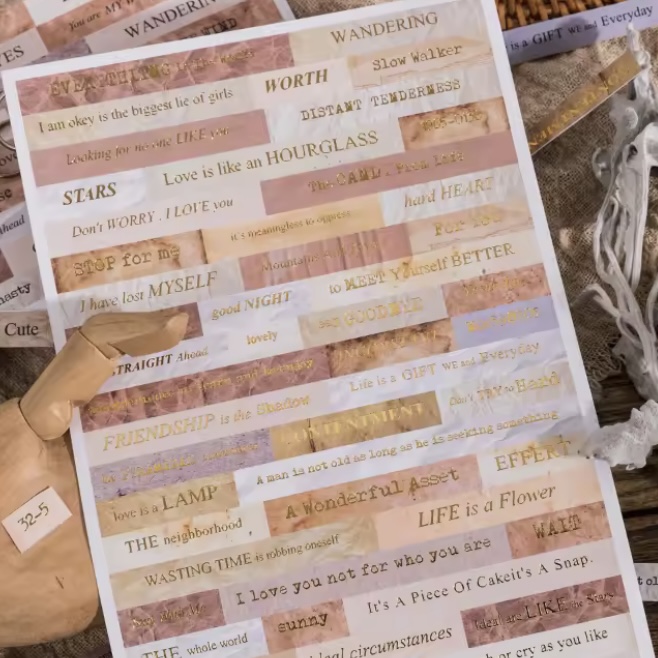 You are MY
WANDERIN
WIND
is a GIFT WE and Everyday
WANDERING
EVERYTHING
Slow Walker
WORTH
I am okey is the biggest lie of girls
DISTANT TENDERNESS
Looking for no one LIKE you
Love is like an HOURGLASS
STARS
The CAMD. From Life
Don't WORRY . I LOVE you
it's meaningless to oppress
hard HEART
STOP for me
Mountains
For YOU
I have lost MYSELF
to MEET Yourself BETTER
good NIGHT
say GOODBYE
STRAIGHT Ahead
lovely
Life is a GIFT WE and Everyday
FRIENDSHIP is the Shadow
CONTENTMENT
Don't TRY so Hard
A man is not old as long as he is seeking something
love is a LAMP
A Wonderful Asset
EFFERT
THE neighborhood
LIFE is a Flower
WASTING TIME is robbing oneself
WAIT
I love you not for who you are
It's A Piece Of Cakeit's A Snap.
sunny
Ideal are LIKE the Stars
THE whole world
ideal circumstances
h or cry as you like
Ahead
nasty
Cute
32-5